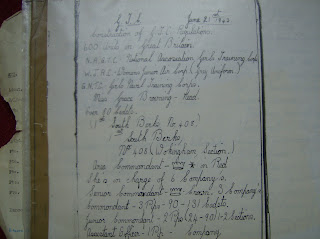 G.T.C June 2nd 1942
Constitution of G.T.C Regulations
600 Units in Great Britain
N.A.G.T.C - National Association Girls Training Corp
W.J.A.C - Womens Junior Air Corp (Grey Uniform)
G.N.T.C Girls Naval Training Corps,
Miss Grace Browning - Head
Over 90 Cadets.
1st South Berks. No 408.
1st South Berks.
No 408 (Wokingham, Section.)
Area Commandant - in Red
She is in charge of 6 Company's.
Senior Commandant - 3 Company's
Commandant - 3 Pips - 90 - 131 Cadets.
Junior Commandant - 2 Pips (24 - 90) 1-2 Sections.
Assistant Officer - 1 Pip - Company.